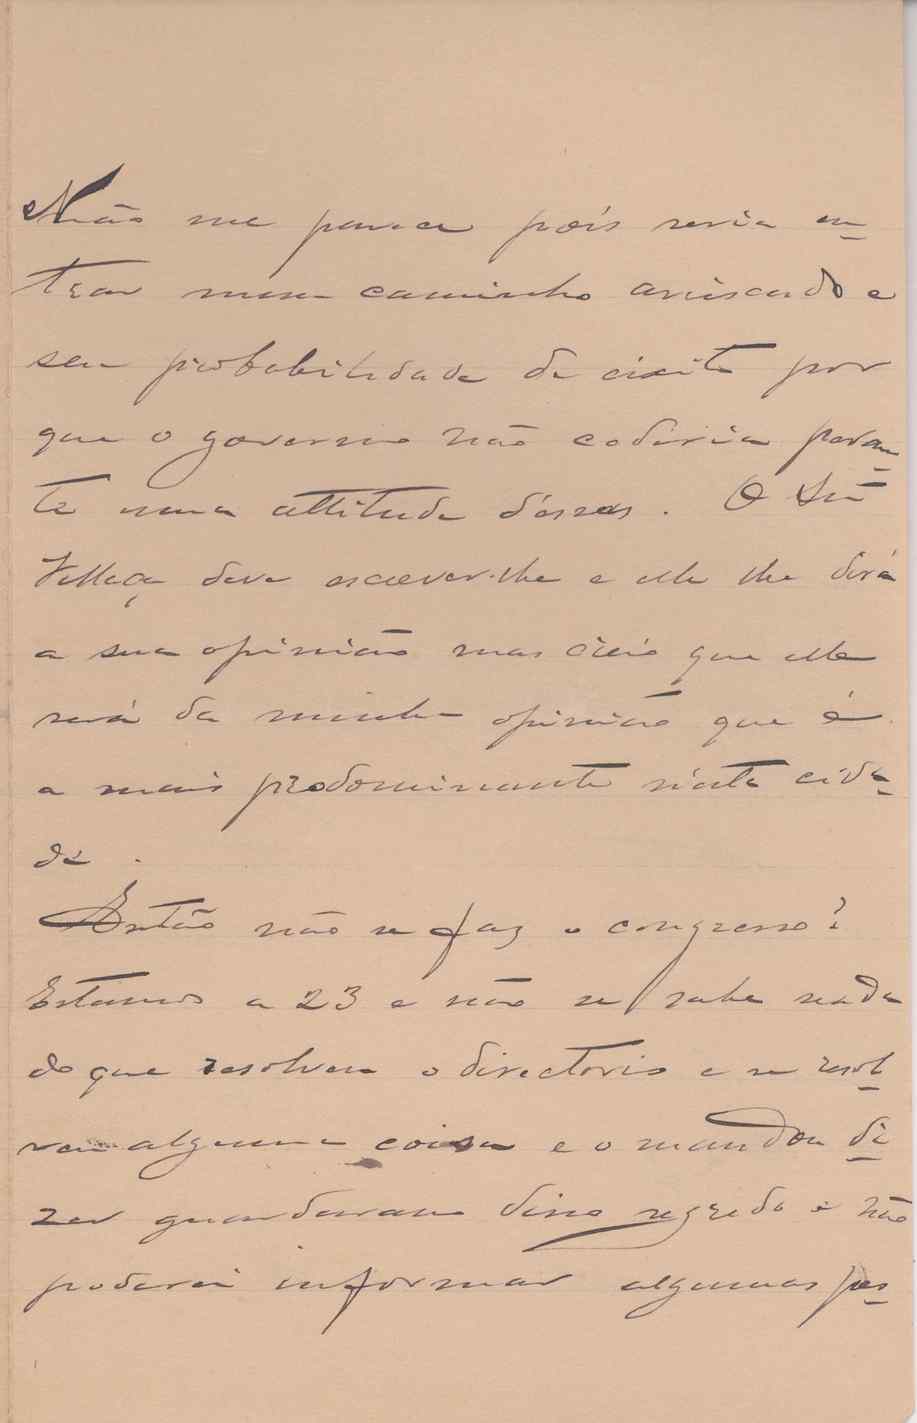 Não me parece pois seria en-
trar num caminho arriscado e
sem probabilidade de exito por
que o governo não cederia peran-
te uma attitude d'essas. O Snr
Villaça deve escrever-lhe e elle lhe dirá
a sua opinião mas creio que elle
será da minha opinião que é
a mais predominante n'esta cida-
de.
Então não se faz o congresso?
Estamos a 23 e não se sabe nada
do que resolveu o directorio e se resol-
veu alguma coisa e o mandou di-
zer guardaram disso segredo e não
poderei informar algumas pes-